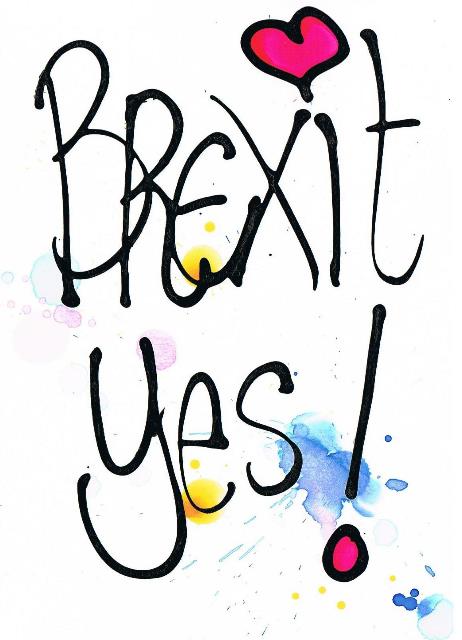 BREXit
Yes!